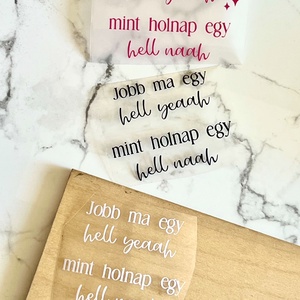 mint holnap egy
hell naah
Jobb ma egy
hell yeaah
mint holnap egy
hell naah
Jobb ma egy
hell yeaah
mint holnap egy
hell